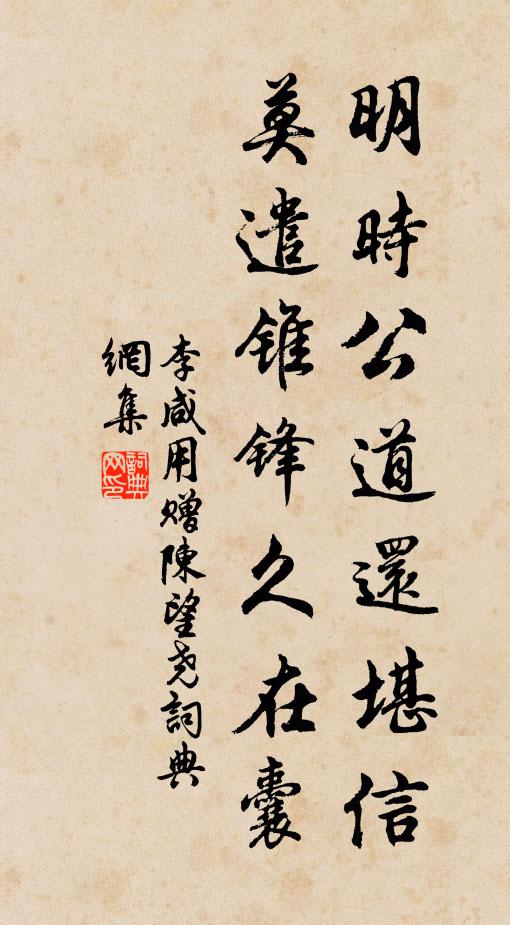 明時公道還堪信
莫遣錐鋒久在囊
李咸用贈陳望尧詞典
網集
詞典網印